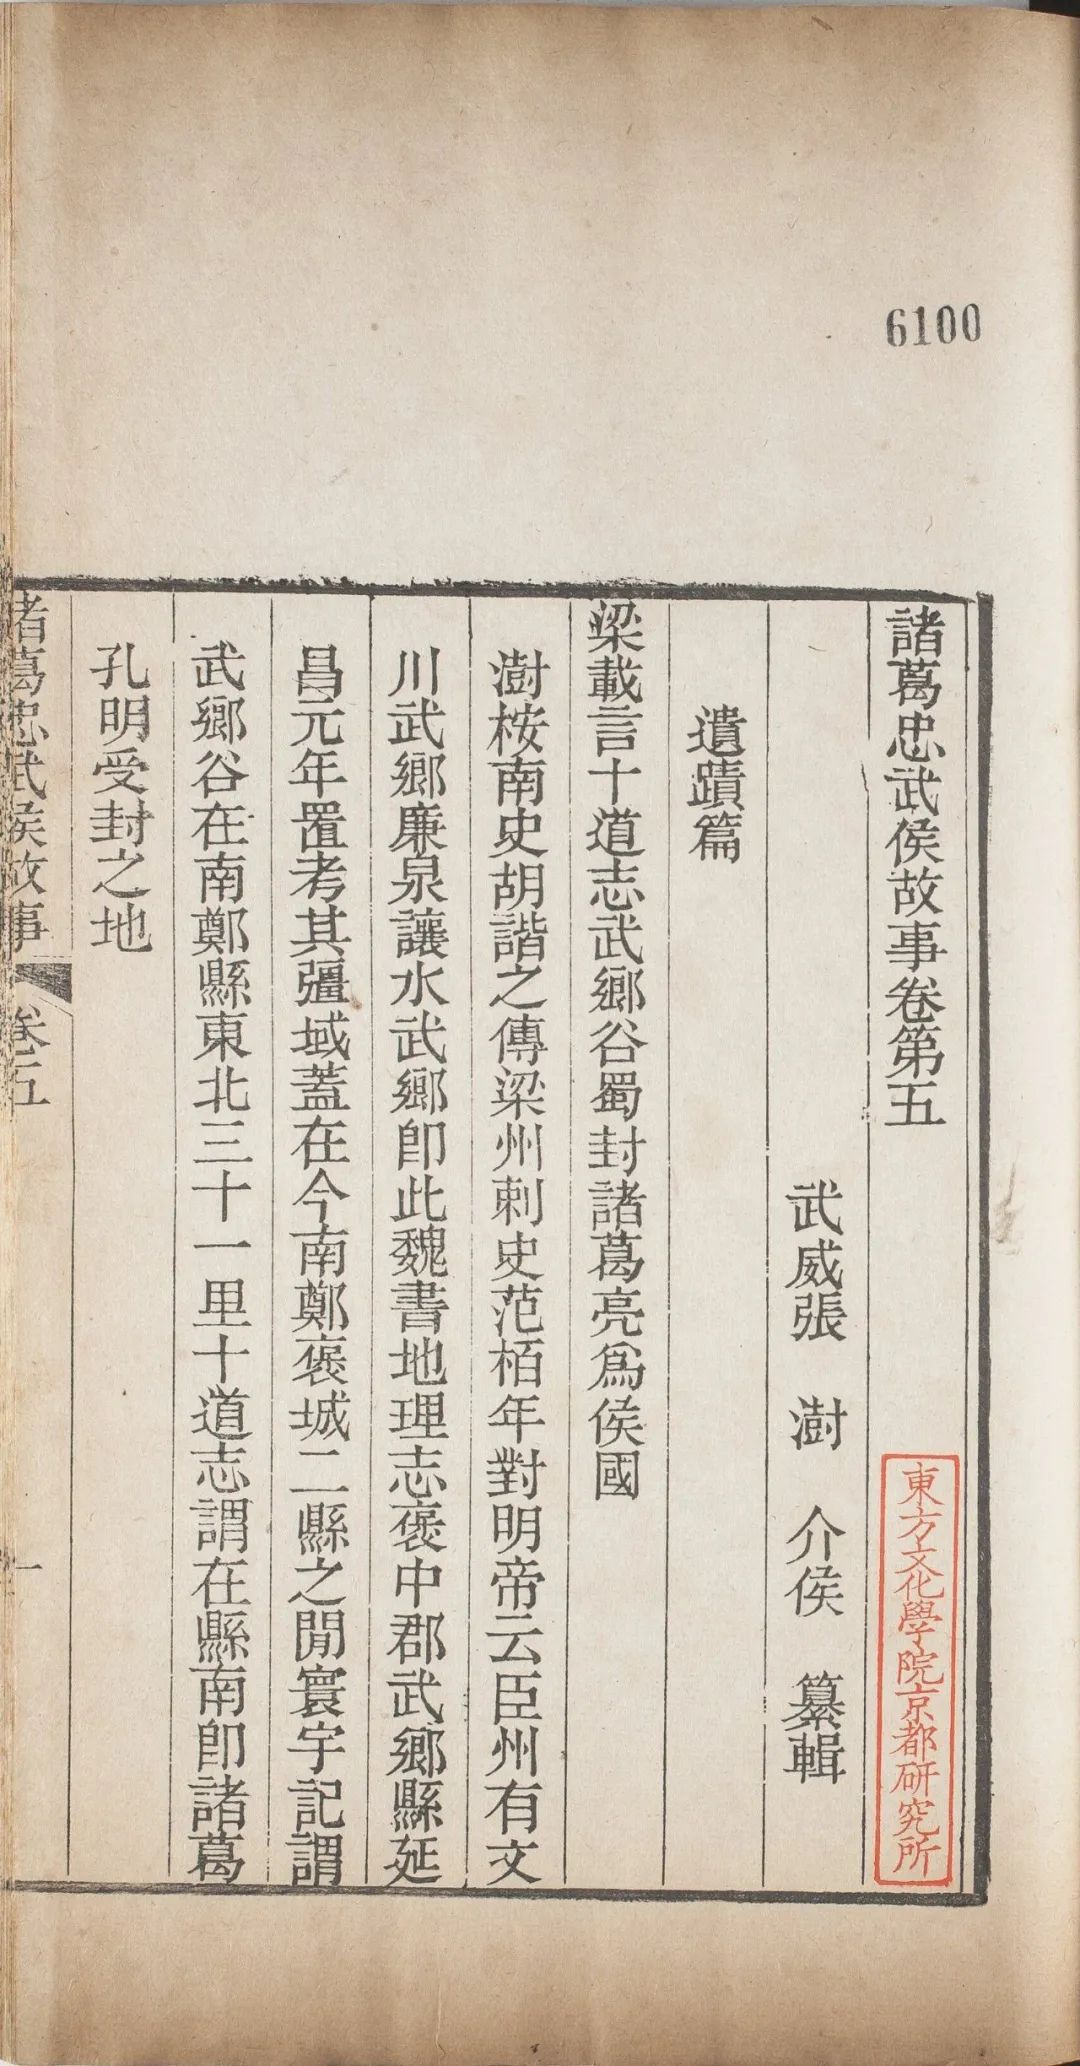 6100
諸葛忠武侯故事卷第五
武威張 澍 介侯 纂輯
東方文化學院京都研究所
遺蹟篇
梁載言十道志武鄉谷蜀封諸葛亮爲侯國
澍桉南史胡諧之傳梁州刺史范栢年對明帝云臣州有文
川武鄉廉泉讓水武鄉卽此魏書地理志褒中郡武鄉縣延
昌元年置考其疆域蓋在今南鄭褒城二縣之閒寰宇記謂
武鄉谷在南鄭縣東北三十一里十道志謂在縣南卽諸葛
孔明受封之地
諸葛忠武侯故事 卷五 一